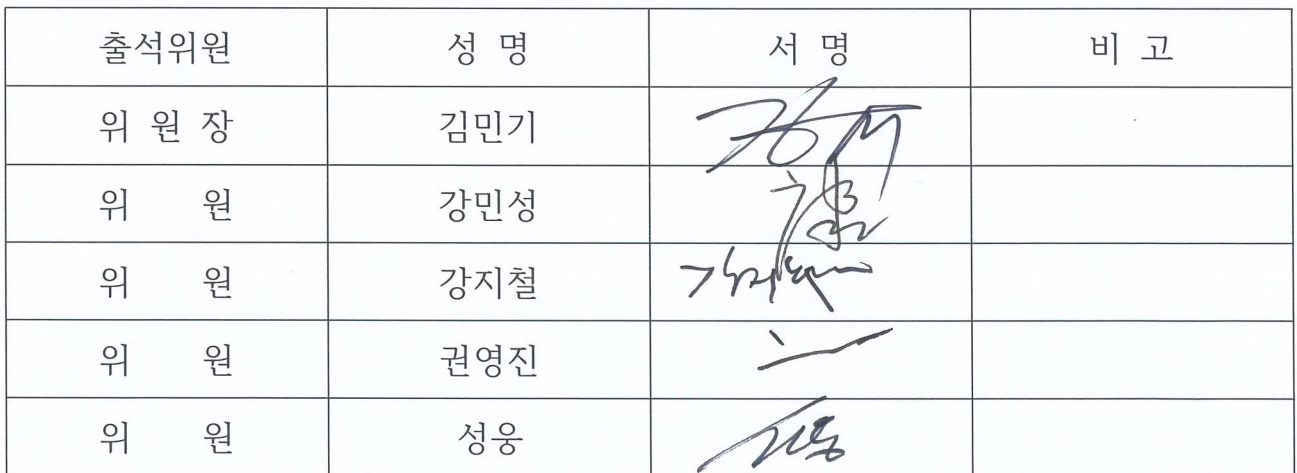 출석위원 성 명 서 명 비 고
위 원 장 김민기
위 원 강민성
위 원 강지철
위 원 권영진
위 원 성웅